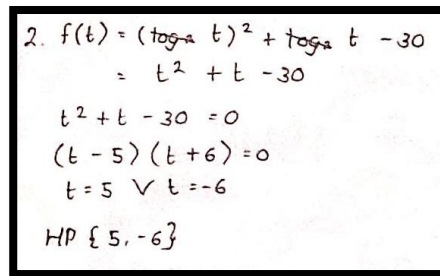 2. f(t) = (log₂ t)² + log₂ t - 30
= t² + t - 30
t² + t - 30 = 0
(t - 5) (t + 6) = 0
t = 5 ∨ t = -6
HP {5, -6}